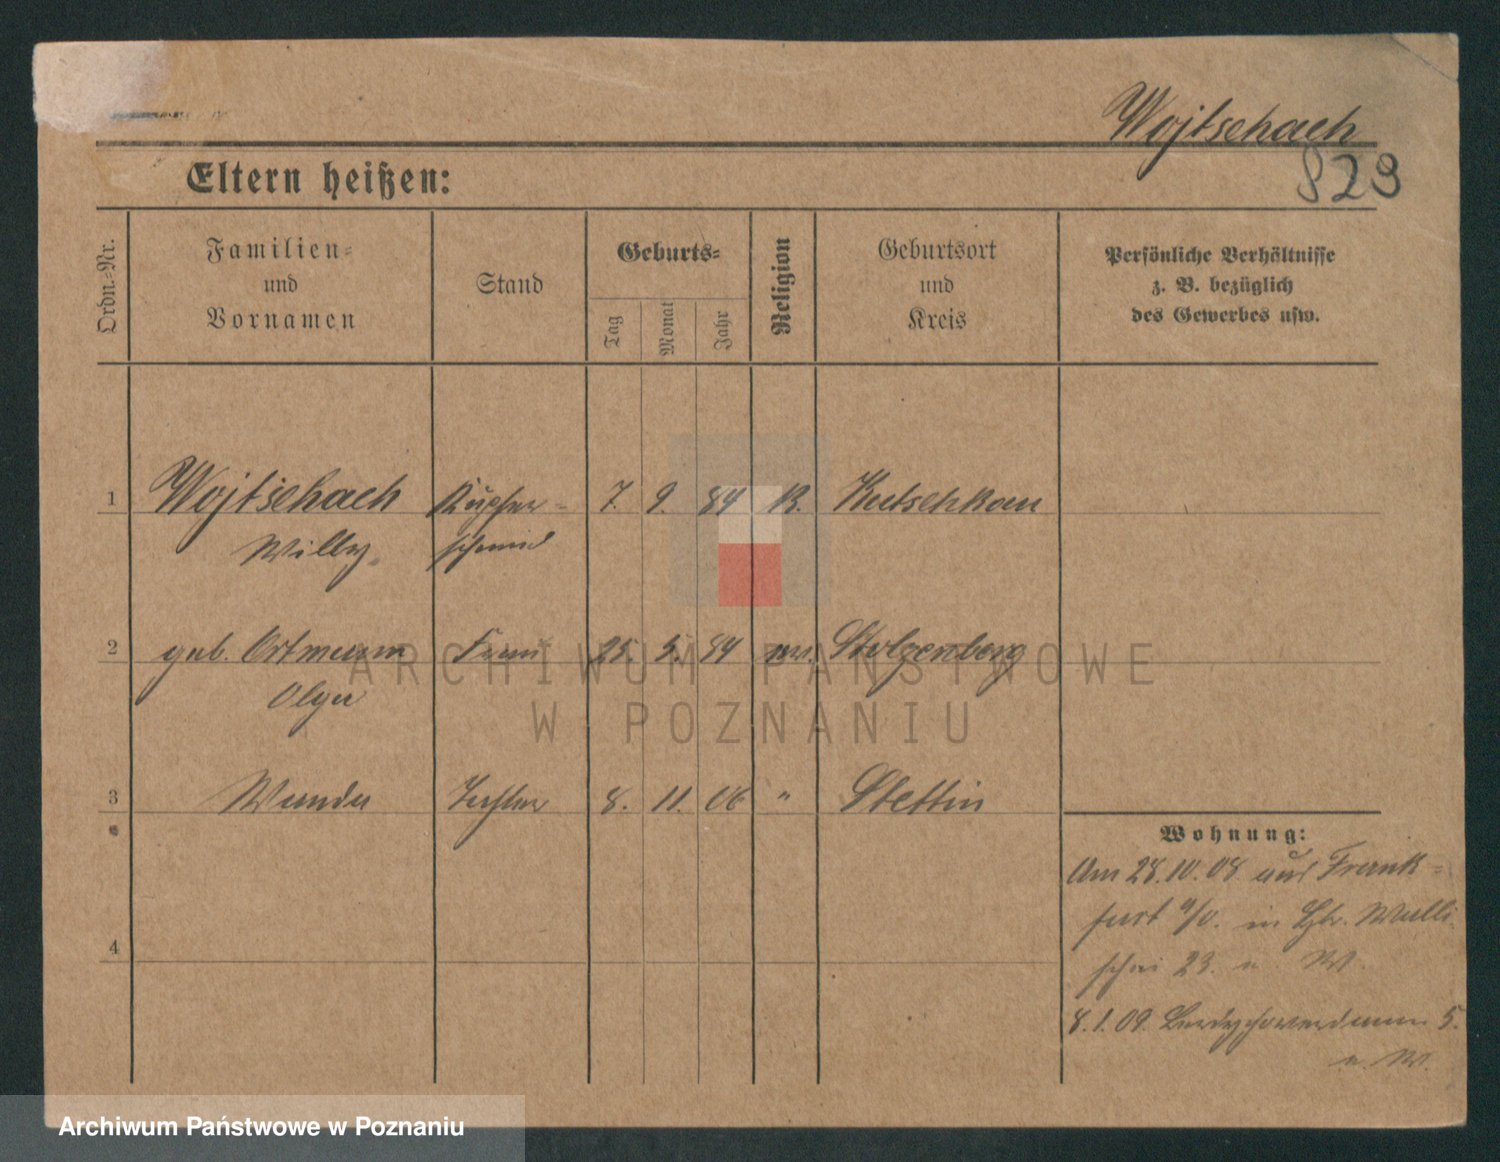 Wojtschach
823
Eltern heißen:
Ordn.-Nr.
Familien-
und
Vornamen
Stand
Geburts-
Tag
Monat
Jahr
Religion
Geburtsort
und
Kreis
Persönliche Verhältnisse
z. B. bezüglich
des Gewerbes usw.
1 Wojtschach Kupfer- 7. 9. 84 K. Kutschkau
Willy schmied
2 geb. Ortmann Frau 25. 5. 84 ev. Stolzenberg
Olga
3 Wanda Tochter 8. 11. 06 " Stettin
Wohnung:
Am 28.10.08 aus Frank-
furt a/O. in Walli
schei 23. W.
4
8.1.09. 5.
W.
ARCHIWUM PAŃSTWOWE
W POZNANIU
Archiwum Państwowe w Poznaniu